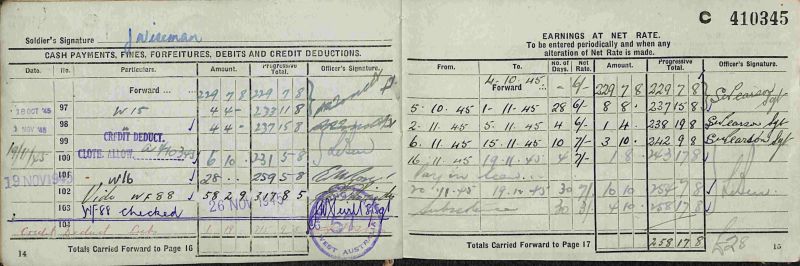 Soldier's Signature J Wiseman
CASH PAYMENTS, FINES, FORFEITURES, DEBITS AND CREDIT DEDUCTIONS.
Date. No. Particulars. Amount. Progressive Total. Officer's Signature.
Forward ... 229 7 8 229 7 8
18 OCT 45 97 W15 4 4 - 233 11 8
3 NOV 45 98 4 4 - 237 15 8
99 CREDIT DEDUCT.
19/11/45 CLOTH. ALLOW.
100 6 10 231 5 8
19 NOV 1945 101 W16 28 259 5 8
102 Vide WF 88 58 2 9 317 8 5
26 NOV 1945
103 WF88 checked
Credit Deduct
Totals Carried Forward to Page 16
14
C 410345
EARNINGS AT NET RATE.
To be entered periodically and when any
alteration of Net Rate is made.
From. To. No. of Days. Net Rate. Amount. Progressive Total. Officer's Signature.
4-10-45
Forward - 6/- 229 7 8 229 7 8
5-10-45 1-11-45 28 6/- 8 8 - 237 15 8
2-11-45 5-11-45 4 6/- 1 4 238 19 8 Pearson Sgt
6.11.45 15-11-45 10 7/- 3 10 242 9 8 Pearson Sgt
16.11.45 19-11-45 4 7/- 1 8 243 17 8
Pay in lieu
20.11.45 19.12.45 30 7/- 10 10 254 7 8
Subsistence 30 3/- 4 10 258 17 8
Totals Carried Forward to Page 17 258 17 8
£28
15